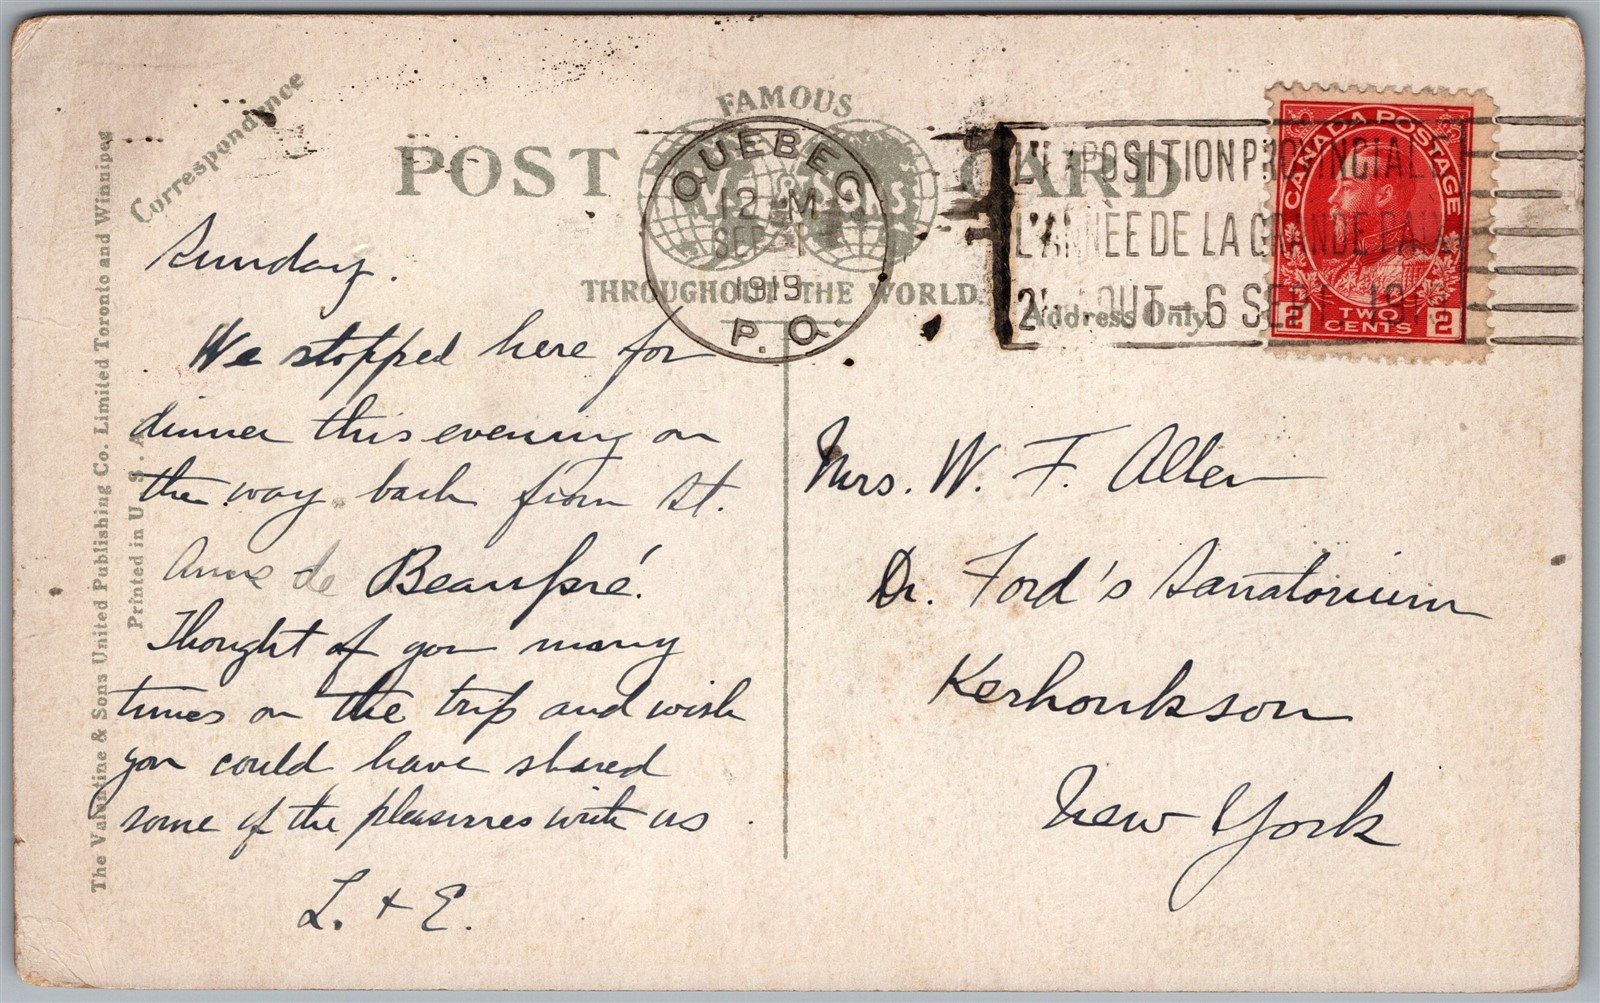 Correspondence
FAMOUS
POST CARD
THROUGHOUT THE WORLD.
Address Only
QUEBEC
12 M
SEP 1
1919
P. Q.
L'EXPOSITION PROVINCIALE
L'ANNÈE DE LA GRANDE PAIX
OUT - 6 SEPT. 191
CANADA POSTAGE
2 TWO CENTS 2
The Valentine & Sons United Publishing Co. Limited Toronto and Winnipeg
Printed in U. S. A.
Sunday.
We stopped here for
dinner this evening on
the way back from St.
Anne de Beaupré.
Thought of you many
times on the trip and wish
you could have shared
some of the pleasures with us.
L. + E.
Mrs. W. F. Allen
Dr. Ford's Sanatorium
Kerhonkson
New York